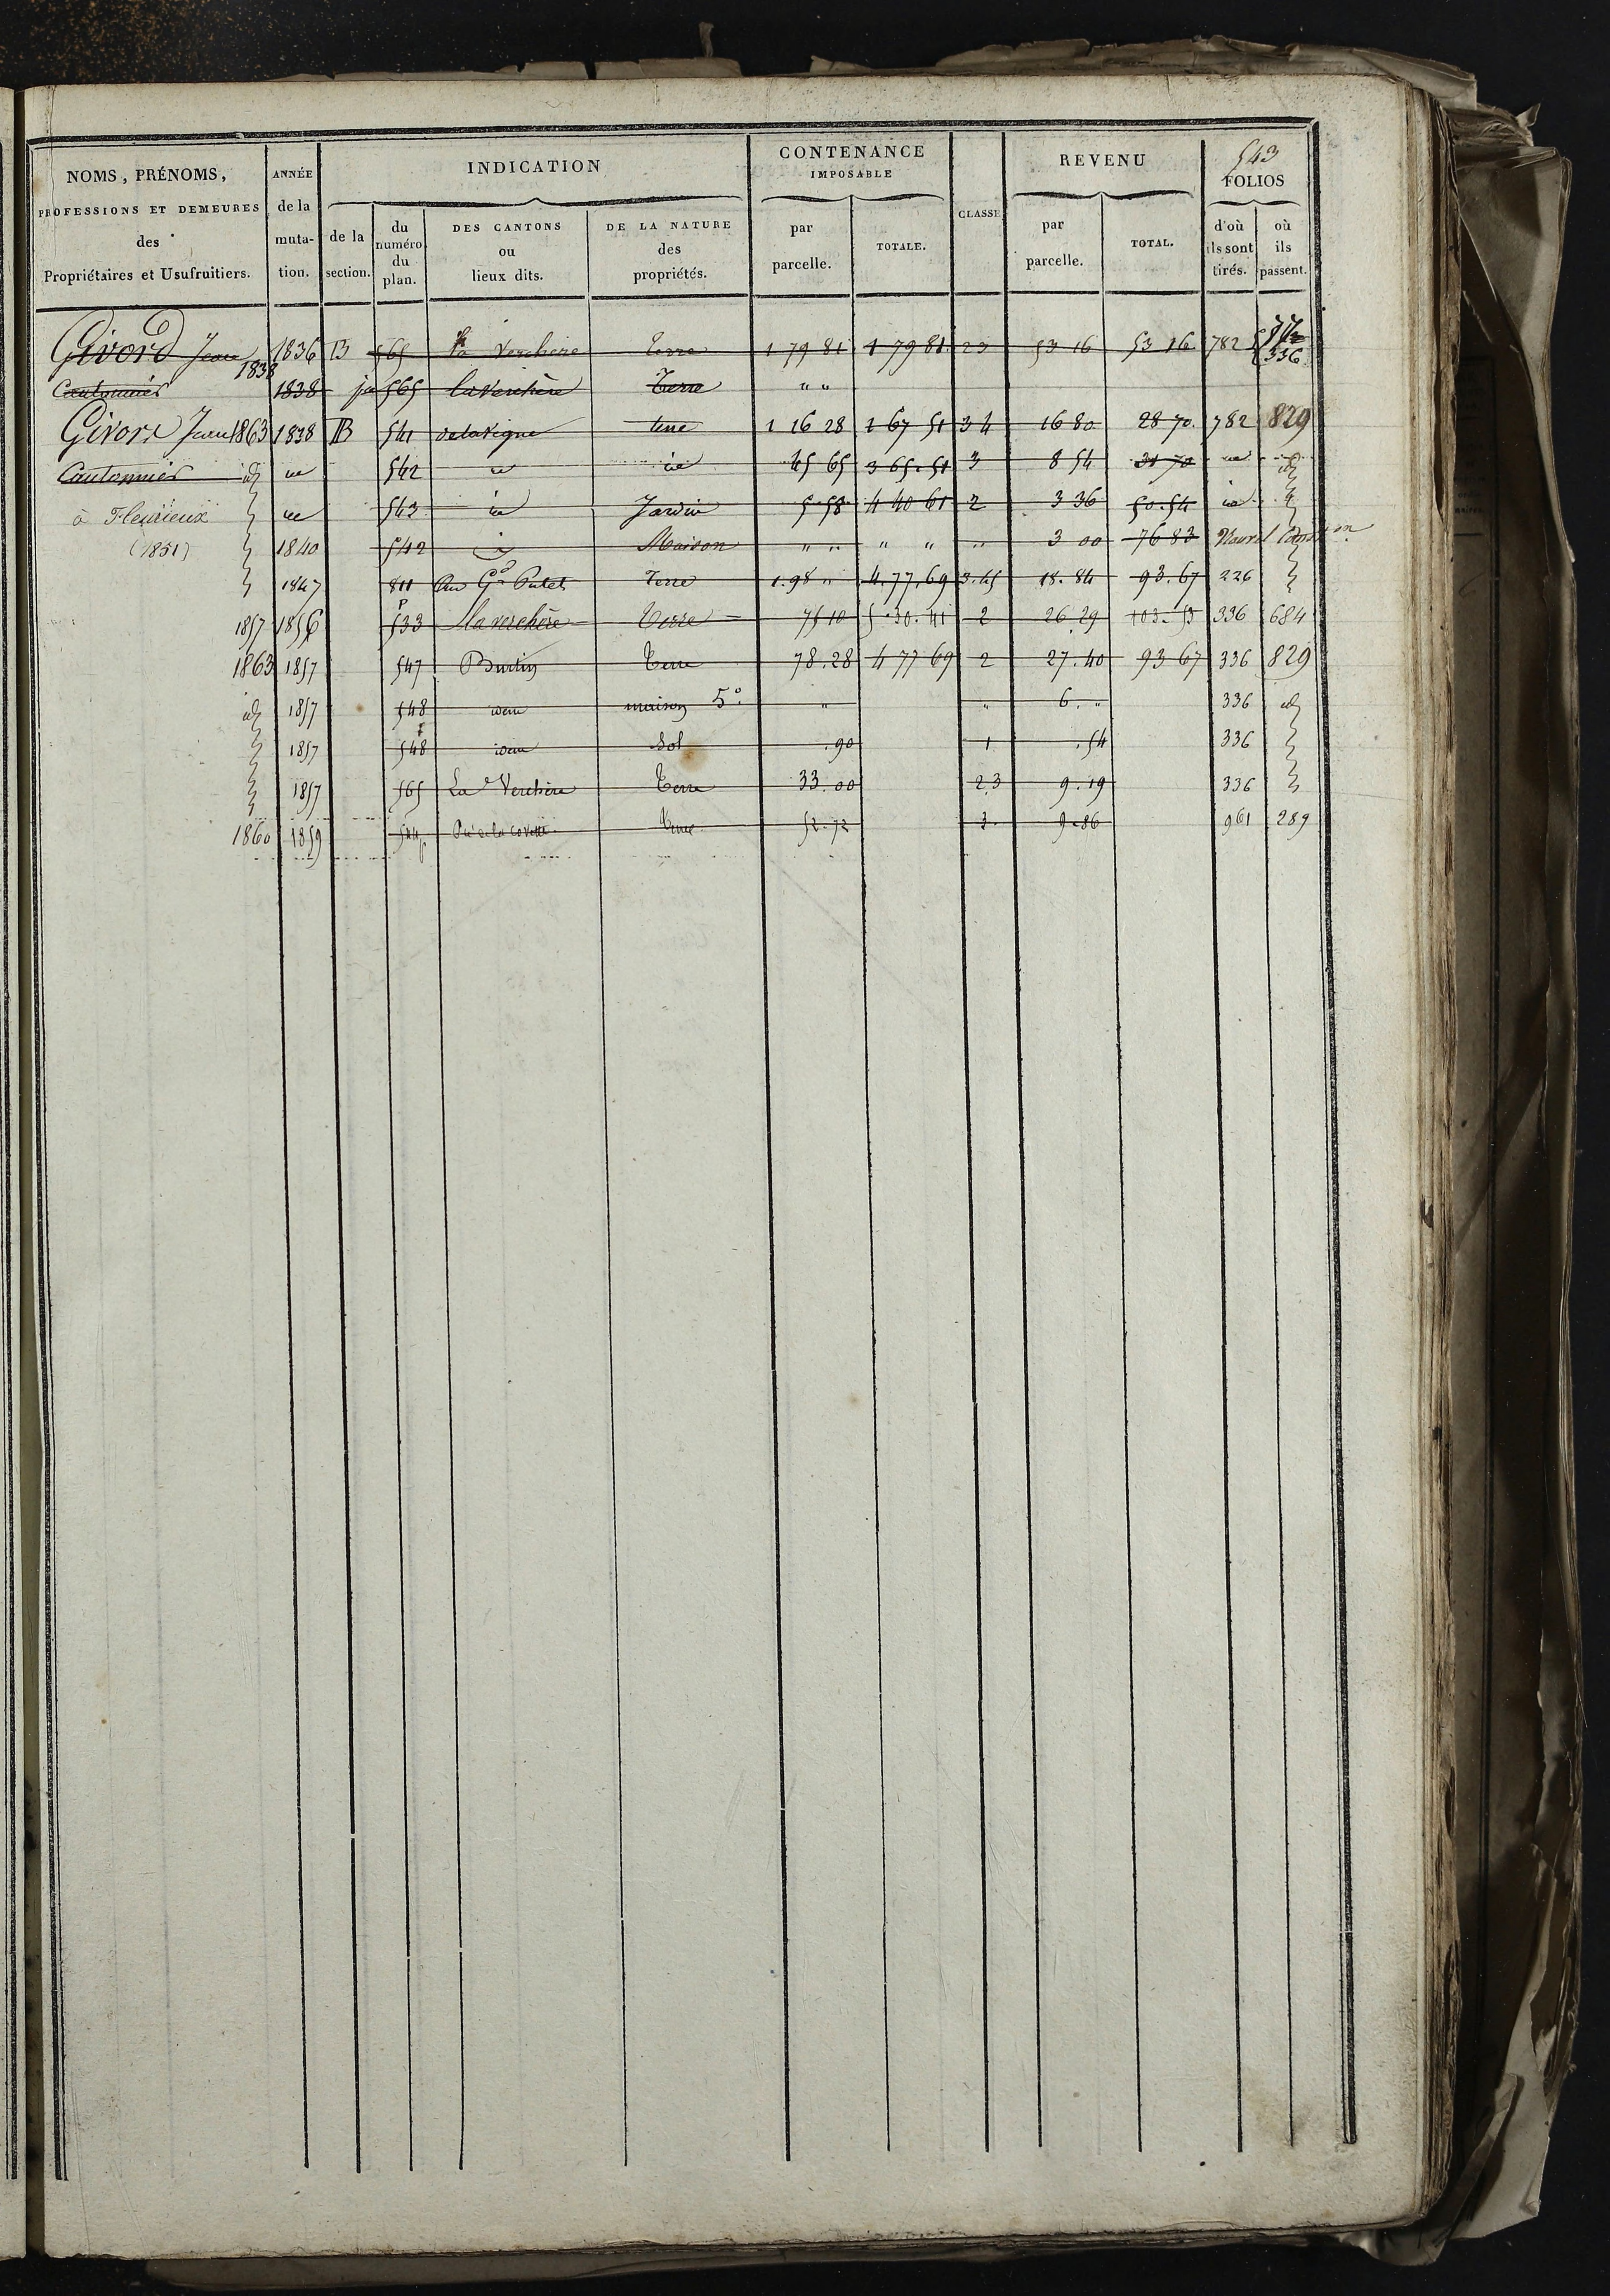 543
NOMS, PRÉNOMS, PROFESSIONS ET DEMEURES des Propriétaires et Usufruitiers.
ANNÉE de la muta- tion.
INDICATION
de la section.
du numéro du plan.
DES CANTONS ou lieux dits.
DE LA NATURE des propriétés.
CONTENANCE IMPOSABLE
par parcelle.
TOTALE.
CLASSE
REVENU
par parcelle.
TOTAL.
FOLIOS
d'où ils sont tirés.
où ils passent.
Givord Jean 1838 1836 B 565 la Verchère terre 1 79 81 1 79 81 23 53 16 53 16 782 336
Cantonnier 1838 565 la Verchère Terre " "
Givord Jean 1863 1838 B 541 de la Vigne terre 1 16 28 1 67 51 3 4 16 80 28 70 782 829
Cantonnier id 542 45 65 3 65.51 3 8 54 31 70 id
à Fleurieux 543 Jardin 5.58 4 40 61 2 3 36 50.54
(1851) 1840 542 Maison " " " " " 3 00 76 83 Nouvel Constr on
1847 811 Au Gd Putet Terre 1.98 " 4.77.69 3.45 18.84 93.67 226
1857 1856 533 p La verchère Terre 75 10 5.30.41 2 26 29 103.53 336 684
1863 1857 547 Burtin Terre 78.28 4 77 69 2 27.40 93 67 336 829
id 1857 548 idem maison 5e " " 6. " 336 id
1857 548 idem Sol .90 1 .54 336
1857 565 La Verchère Terre 33.00 2.3 9.19 336
1860 1859 544 p 52.72 3. 9.86 961 289